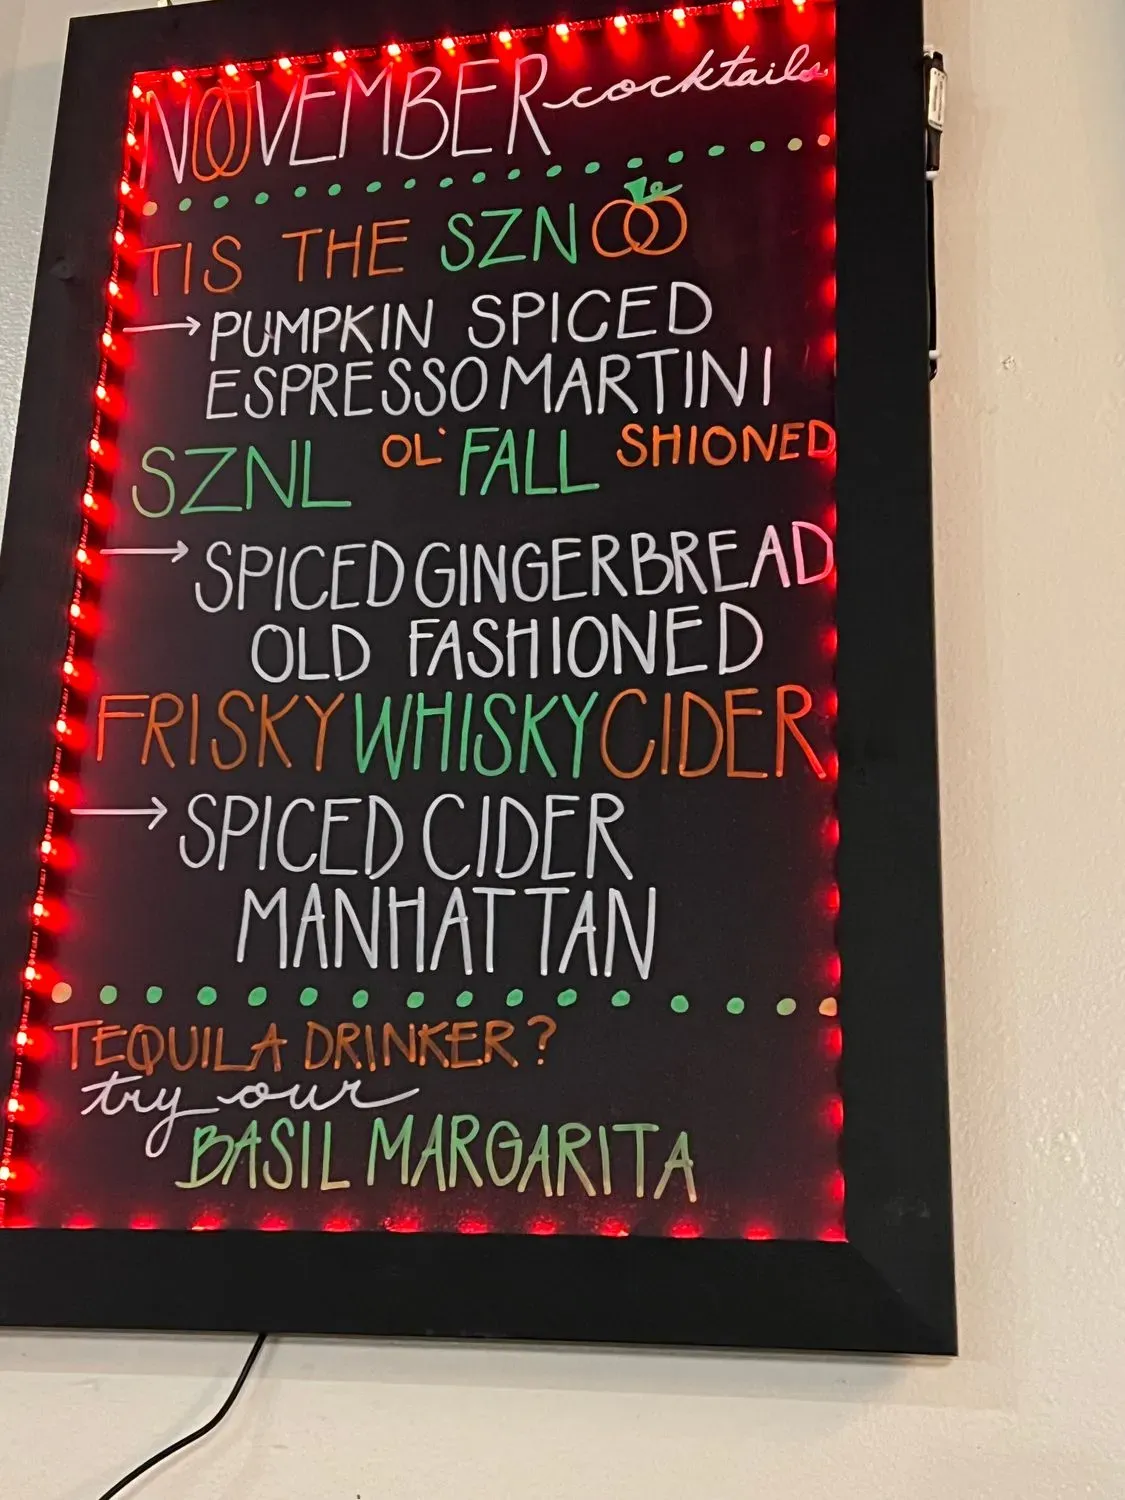 NOVEMBER cocktails
TIS THE SZN
→ PUMPKIN SPICED
ESPRESSO MARTINI
SZNL OL' FALL SHIONED
→ SPICED GINGERBREAD
OLD FASHIONED
FRISKY WHISKY CIDER
→ SPICED CIDER
MANHATTAN
TEQUILA DRINKER?
try our
BASIL MARGARITA